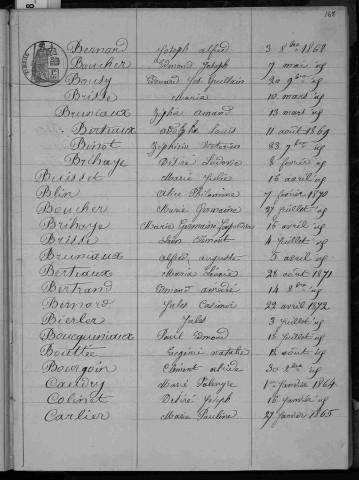 168
Bernard Joseph alfred 3 8bre 1868
Boucher Edmond Joseph 7 mai id
Bousy Edouard Jos. Guillain 20 9bre id
Brisse Maria 10 mars id
Bruniaux Zéphir armand 13 mars id
Bertiaux adolphe Louis 11 aout 1869
Binot Zéphirin 23 7bre id
Brihaye Désiré Ludovic 8 février id
Buisset Marie Julie 16 avril id
Blin Alice Philomène 7 février 1870
Boucher Marie Germaine 27 juillet id
Brihaye Marie Germain 16 avril id
Brisse Léon Clément 4 juillet id
Bruniaux alfred auguste 5 avril id
Bertiaux Maria 28 aout 1871
Bertrand Edmond andré 14 8bre id
Bernard Jules Casimir 22 avril 1872
Bierler Jules 3 juillet id
Bouquiniaux Paul Edmond 16 juillet id
Bouttée Eugénie natalie 12 aout id
Bourgoin Clément alcide 30 8bre id
Caudry Marie Palmyre 1er janvier 1864
Colinet Désiré Joseph 16 janvier id
Carlier Marie Pauline 27 janvier 1865